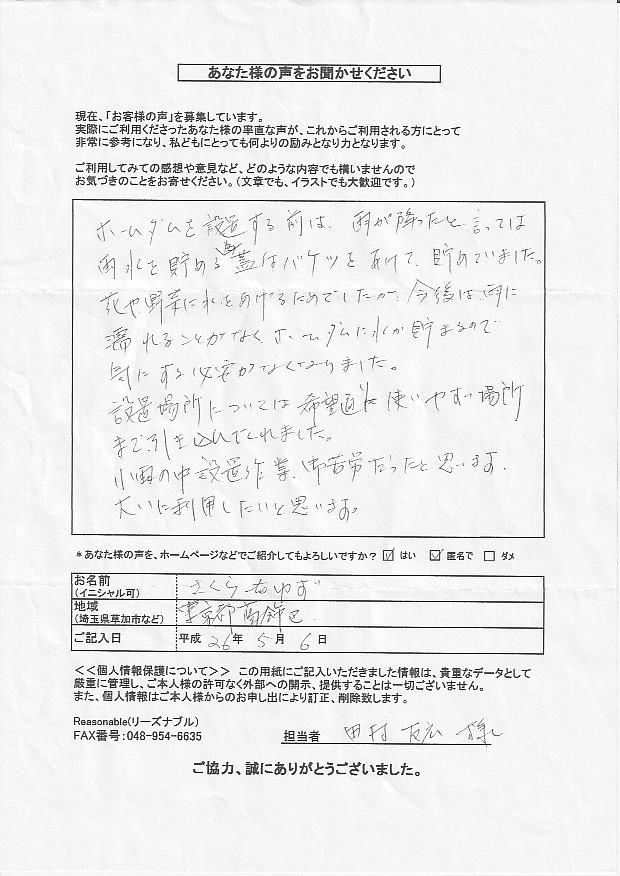 あなた様の声をお聞かせください
現在、「お客様の声」を募集しています。
実際にご利用くださったあなた様の率直な声が、これからご利用される方にとって
非常に参考になり、私どもにとっても何よりの励みとなり力となります。
ご利用してみての感想や意見など、どのような内容でも構いませんので
お気づきのことをお寄せください。（文章でも、イラストでも大歓迎です。）
ホームダムを設置する前は、雨が降ったと言っては
雨水を貯める為蓋なバケツをあけて、貯めていました。
花や野菜に水をあげるためでしたが、今後は雨に
濡れることがなく、ホームダムに水が貯まるので
気にする必要がなくなりました。
設置場所については希望通りに使いやすい場所
まで引き込んでくれました。
小雨の中設置作業、御苦労だったと思います。
大いに利用したいと思います。
＊あなた様の声を、ホームページなどでご紹介してもよろしいですか？ ☑ はい ☑ 匿名で □ ダメ
お名前
（イニシャル可） さくら
地域
（埼玉県草加市など） 東京都葛飾区
ご記入日 平成 26年 5月 6日
＜＜個人情報保護について＞＞ この用紙にご記入いただきました情報は、貴重なデータとして
厳重に管理し、ご本人様の許可なく外部への開示、提供することは一切ございません。
また、個人情報はご本人様からのお申し出により訂正、削除致します。
Reasonable（リーズナブル）
FAX番号：048-954-6635 担当者 田村 友広 様
ご協力、誠にありがとうございました。